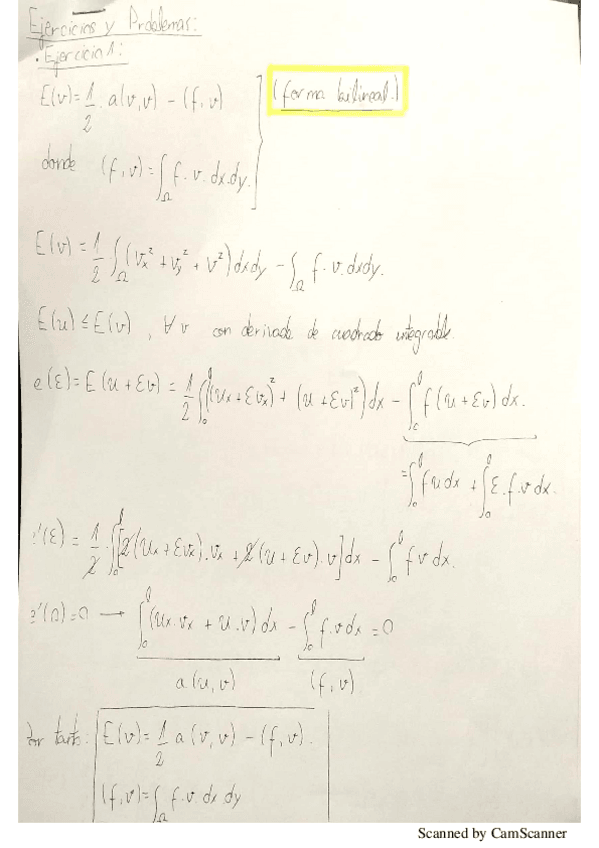 Ejercicios y Problemas:
• Ejercicio 1:
E(v) = 1/2 · a(v,v) - (f,v)
(forma bilineal.)
donde (f,v) = ∫_Ω f·v·dx·dy.
E(v) = 1/2 ∫_Ω (v_x² + v_y² + v²) dxdy - ∫_Ω f·v·dxdy.
E(u) ≤ E(v), ∀ v con derivada de cuadrado integrable.
e(ε) = E(u + εv) = 1/2 ∫_0^l ((u_x + εv_x)² + (u + εv)²) dx - ∫_0^l f(u + εv) dx.
= ∫_0^l f u dx + ∫_0^l ε·f·v dx.
e'(ε) = 1/2 · ∫_0^l [2(u_x + εv_x)·v_x + 2(u + εv)·v] dx - ∫_0^l f v dx.
e'(0) = 0 → ∫_0^l (u_x·v_x + u·v) dx - ∫_0^l f·v dx = 0
a(u,v) (f,v)
Por tanto: E(v) = 1/2 a(v,v) - (f,v).
(f,v) = ∫_Ω f·v·dx dy
Scanned by CamScanner